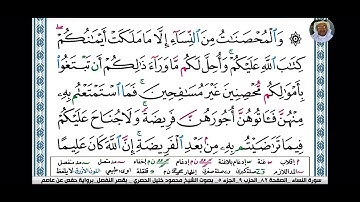 ۞ وَٱلْمُحْصَنَٰتُ مِنَ ٱلنِّسَآءِ إِلَّا مَا مَلَكَتْ أَيْمَٰنُكُمْ
كِتَٰبَ ٱللَّهِ عَلَيْكُمْ ۚ وَأُحِلَّ لَكُم مَّا وَرَآءَ ذَٰلِكُمْ أَن تَبْتَغُوا۟
بِأَمْوَٰلِكُم مُّحْصِنِينَ غَيْرَ مُسَٰفِحِينَ ۚ فَمَا ٱسْتَمْتَعْتُم بِهِۦ
مِنْهُنَّ فَـَٔاتُوهُنَّ أُجُورَهُنَّ فَرِيضَةً ۚ وَلَا جُنَاحَ عَلَيْكُمْ
فِيمَا تَرَٰضَيْتُم بِهِۦ مِنۢ بَعْدِ ٱلْفَرِيضَةِ ۚ إِنَّ ٱللَّهَ كَانَ عَلِيمًا
سورة النساء_الصفحة ٨٢_الحزب ٩_الجزء ٥_ بصوت الشيخ محمود خليل الحصري_ بقصر المنفصل برواية حفص عن عاصم